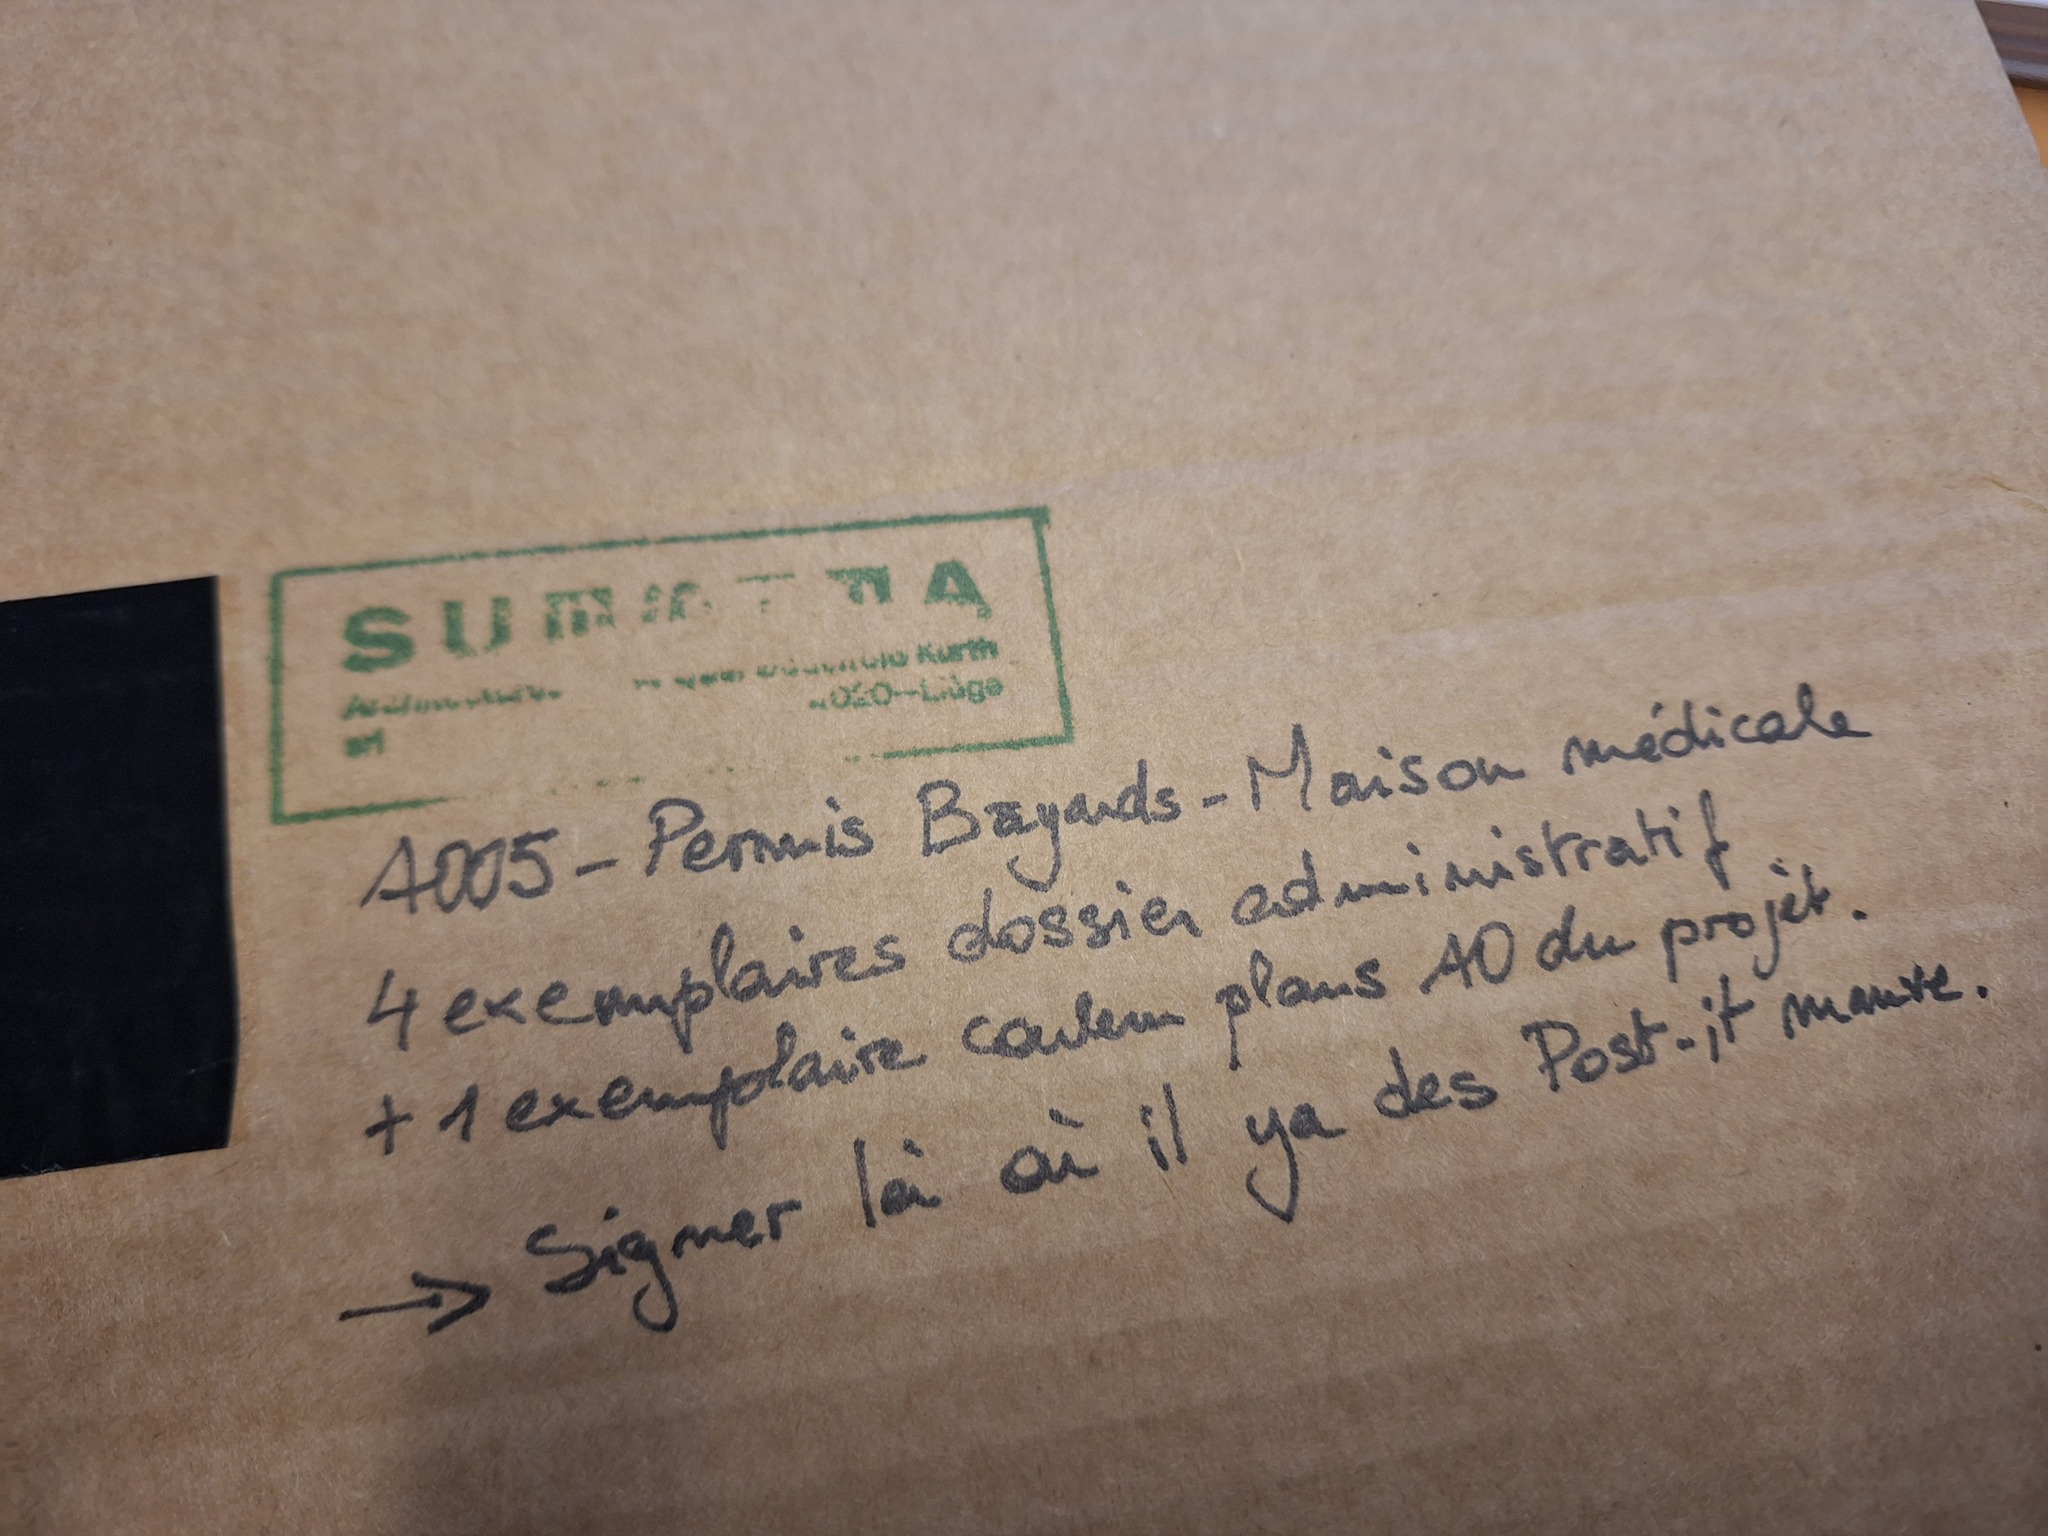 Kurth
Liège
srl
A005 - Permis Bayards - Maison médicale
4 exemplaires dossier administratif
+ 1 exemplaire couleur plans A0 du projet.
→ Signer là où il y a des Post-it mauve.